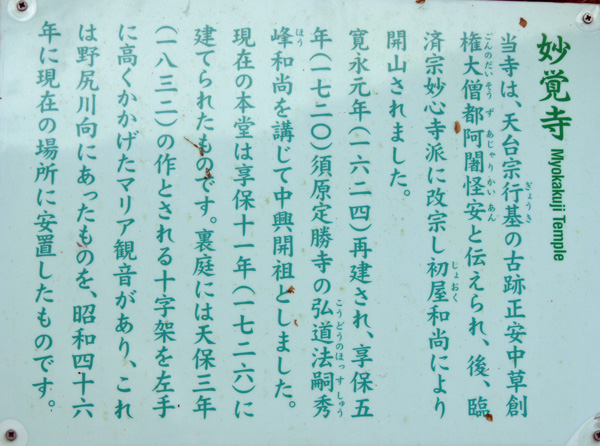 妙覚寺 Myokakuji Temple
当寺は、天台宗行基の古跡正安中草創
権大僧都阿闍怪安と伝えられ、後、臨
済宗妙心寺派に改宗し初屋和尚により
開山されました。
寛永元年(一六二四)再建され、享保五
年(一七二〇)須原定勝寺の弘道法嗣秀
峰和尚を講じて中興開祖としました。
現在の本堂は享保十一年(一七二六)に
建てられたものです。裏庭には天保三年
(一八三二)の作とされる十字架を左手
に高くかかげたマリア観音があり、これ
は野尻川向にあったものを、昭和四十六
年に現在の場所に安置したものです。
ぎょうき
ごんのだいそうず あじゃりかいあん
じょおく
こうどうのほっすしゅう
ほう